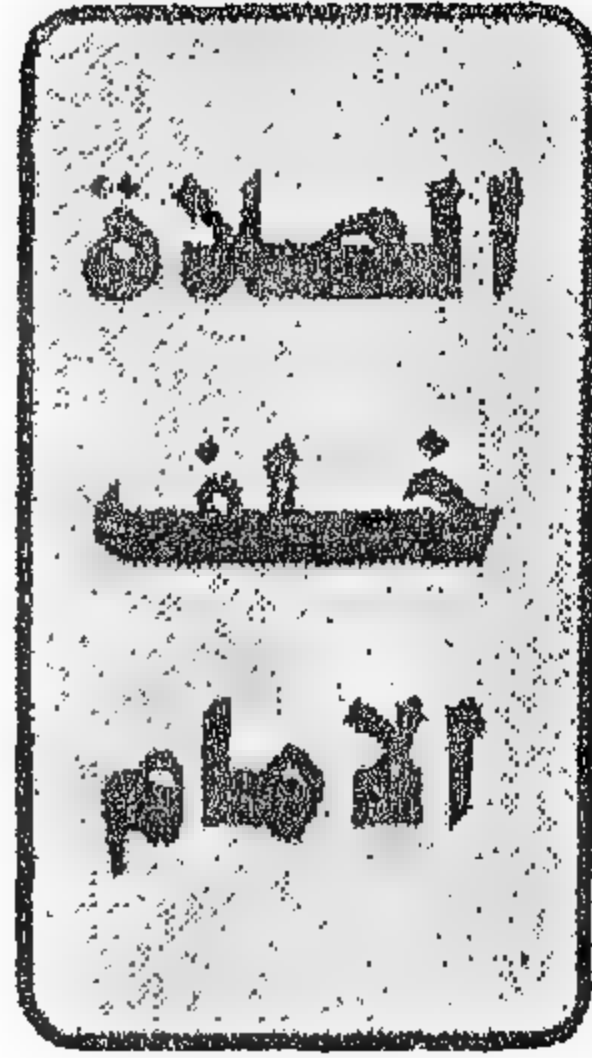 الصلاة
خلف
الامام